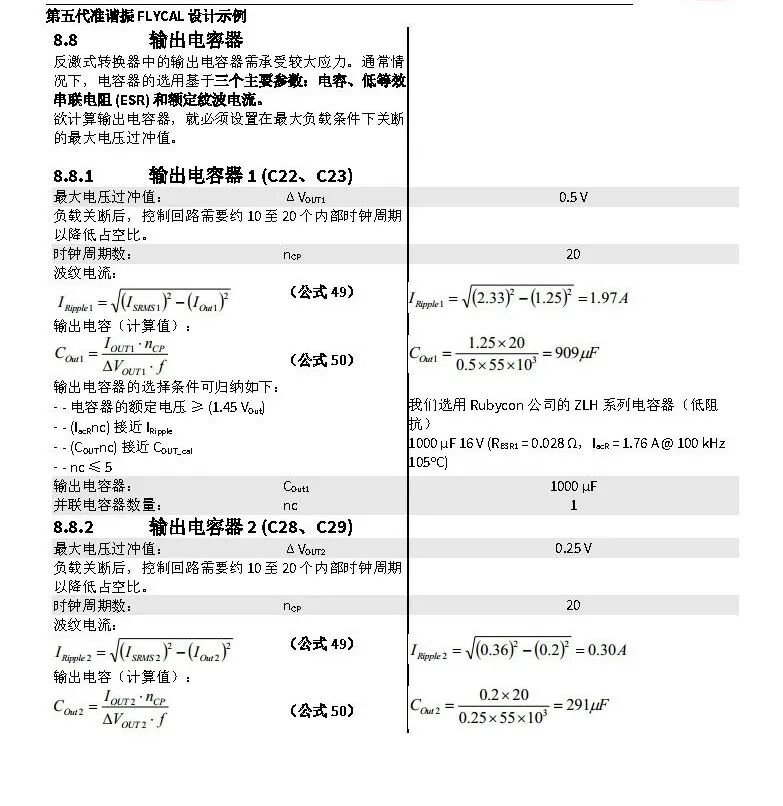 第五代准谐振 FLYCAL 设计示例
8.8 输出电容器
反激式转换器中的输出电容器需承受较大应力。通常情
况下，电容器的选用基于三个主要参数：电容、低等效
串联电阻 (ESR) 和额定纹波电流。
欲计算输出电容器，就必须设置在最大负载条件下关断
的最大电压过冲值。
8.8.1 输出电容器 1 (C22、C23)
最大电压过冲值： Δ V_OUT1 0.5 V
负载关断后，控制回路需要约 10 至 20 个内部时钟周期
以降低占空比。
时钟周期数： n_CP 20
波纹电流：
I_Ripple1 = √((I_SRMS1)² − (I_Out1)²) （公式 49） I_Ripple1 = √((2.33)² − (1.25)²) = 1.97 A
输出电容（计算值）：
C_Out1 = (I_OUT1 · n_CP) / (ΔV_OUT1 · f) （公式 50） C_Out1 = (1.25 × 20) / (0.5 × 55 × 10³) = 909 μF
输出电容器的选择条件可归纳如下：
- - 电容器的额定电压 ≥ (1.45 V_Out)
- - (I_acR nc) 接近 I_Ripple
- - (C_OUT nc) 接近 C_OUT_cal
- - nc ≤ 5
我们选用 Rubycon 公司的 ZLH 系列电容器（低阻
抗）
1000 μF 16 V (R_ESR1 = 0.028 Ω， I_acR = 1.76 A @ 100 kHz
105°C)
输出电容器： C_Out1 1000 μF
并联电容器数量： nc 1
8.8.2 输出电容器 2 (C28、C29)
最大电压过冲值： Δ V_OUT2 0.25 V
负载关断后，控制回路需要约 10 至 20 个内部时钟周期
以降低占空比。
时钟周期数： n_CP 20
波纹电流：
I_Ripple2 = √((I_SRMS2)² − (I_Out2)²) （公式 49） I_Ripple2 = √((0.36)² − (0.2)²) = 0.30 A
输出电容（计算值）：
C_Out2 = (I_OUT2 · n_CP) / (ΔV_OUT2 · f) （公式 50） C_Out2 = (0.2 × 20) / (0.25 × 55 × 10³) = 291 μF